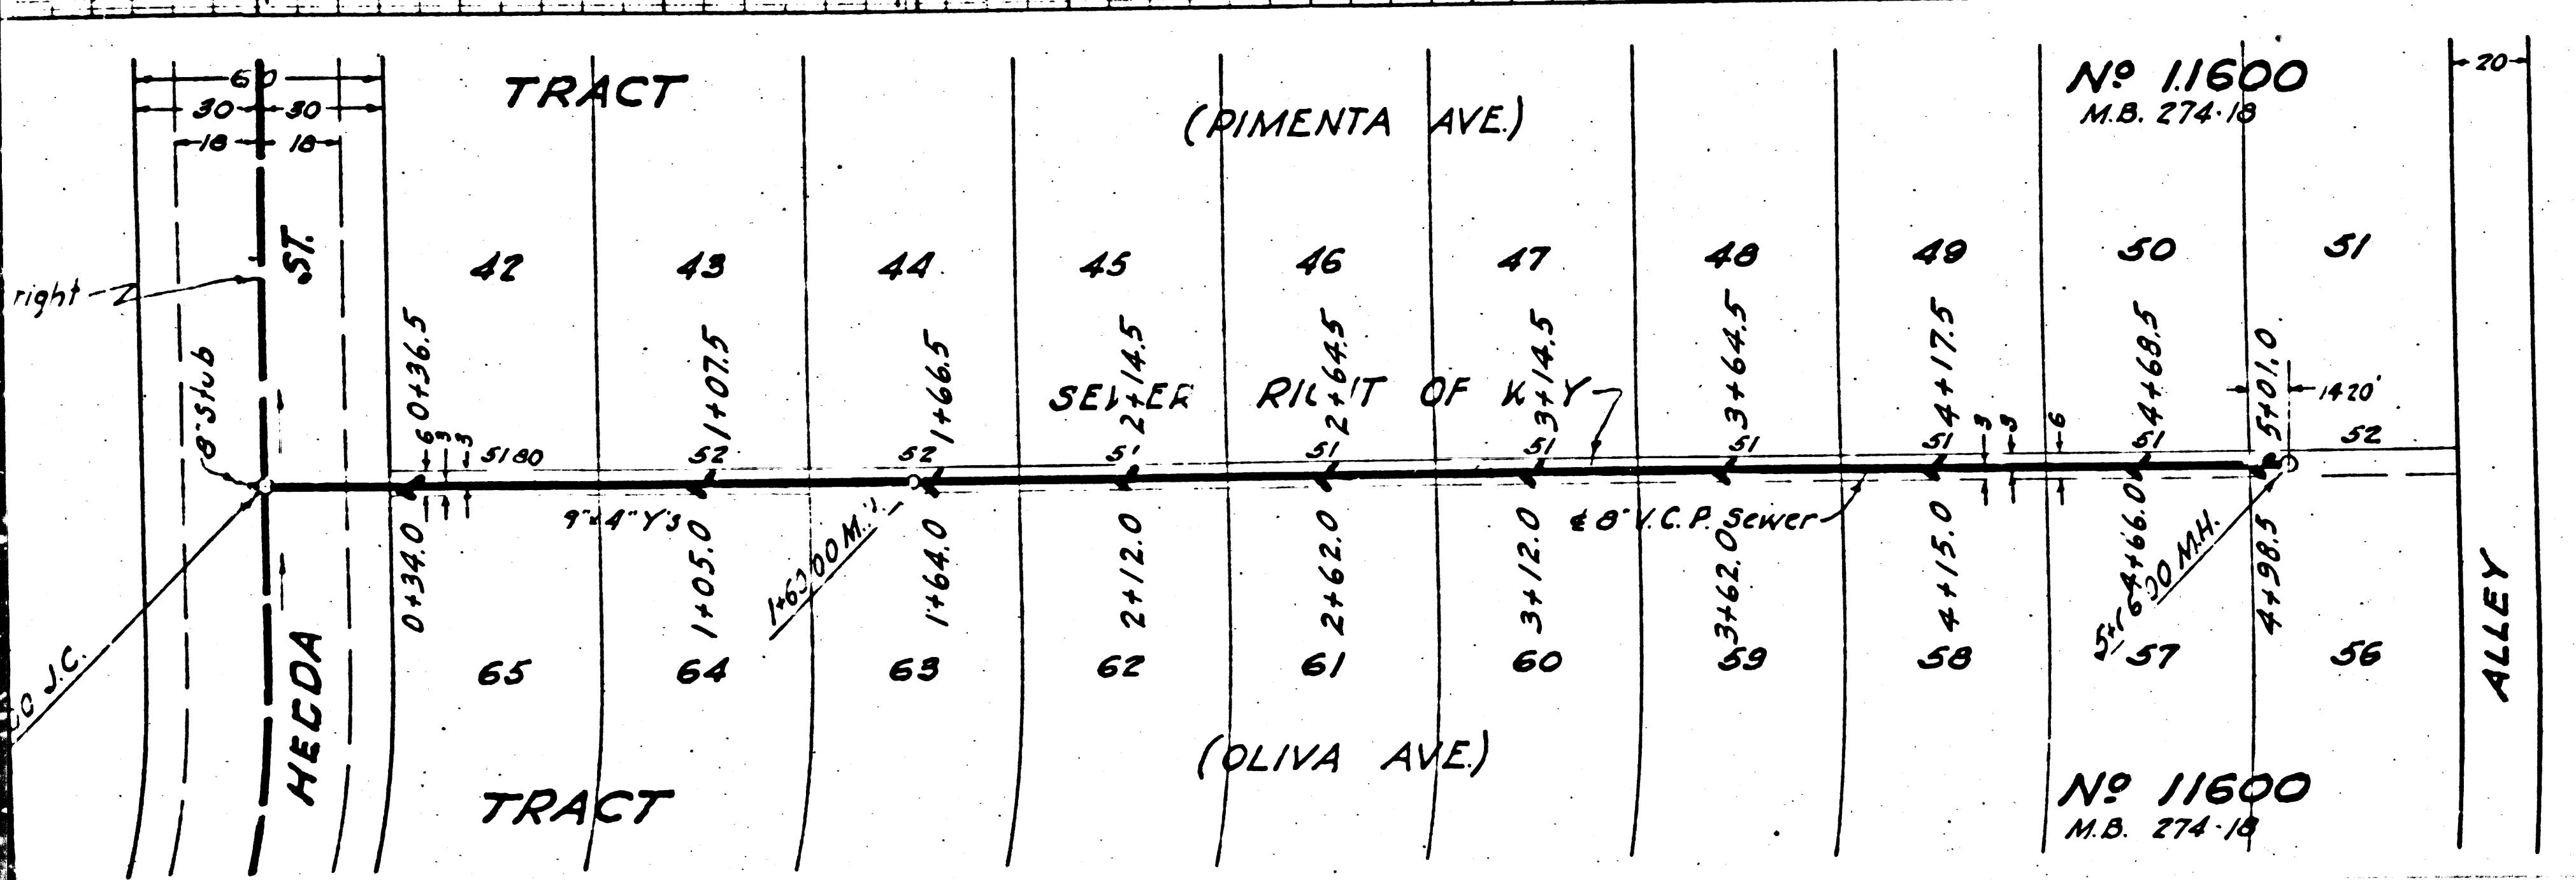 60
30 30
18 18
TRACT
(PIMENTA AVE.)
Nº 11600
M.B. 274-18
20
right
ST.
8" Stub
42
43
44
45
46
47
48
49
50
51
0+36.5
1+07.5
1+66.5
2+14.5
2+64.5
3+14.5
3+64.5
4+17.5
4+68.5
5+01.0
14.20'
SEWER RIGHT OF WAY
6
3
3
51.80
52
52
51
51
51
51
51
52
3
3
6
9"x4" Y's
℄ 8" V.C.P. Sewer
0+34.0
1+05.0
M.H.
1+64.0
2+12.0
2+62.0
3+12.0
3+62.0
4+15.0
4+66.0
00 M.H.
4+98.5
J.C.
HECDA
65
64
63
62
61
60
59
58
57
56
ALLEY
(OLIVA AVE.)
TRACT
Nº 11600
M.B. 274-18